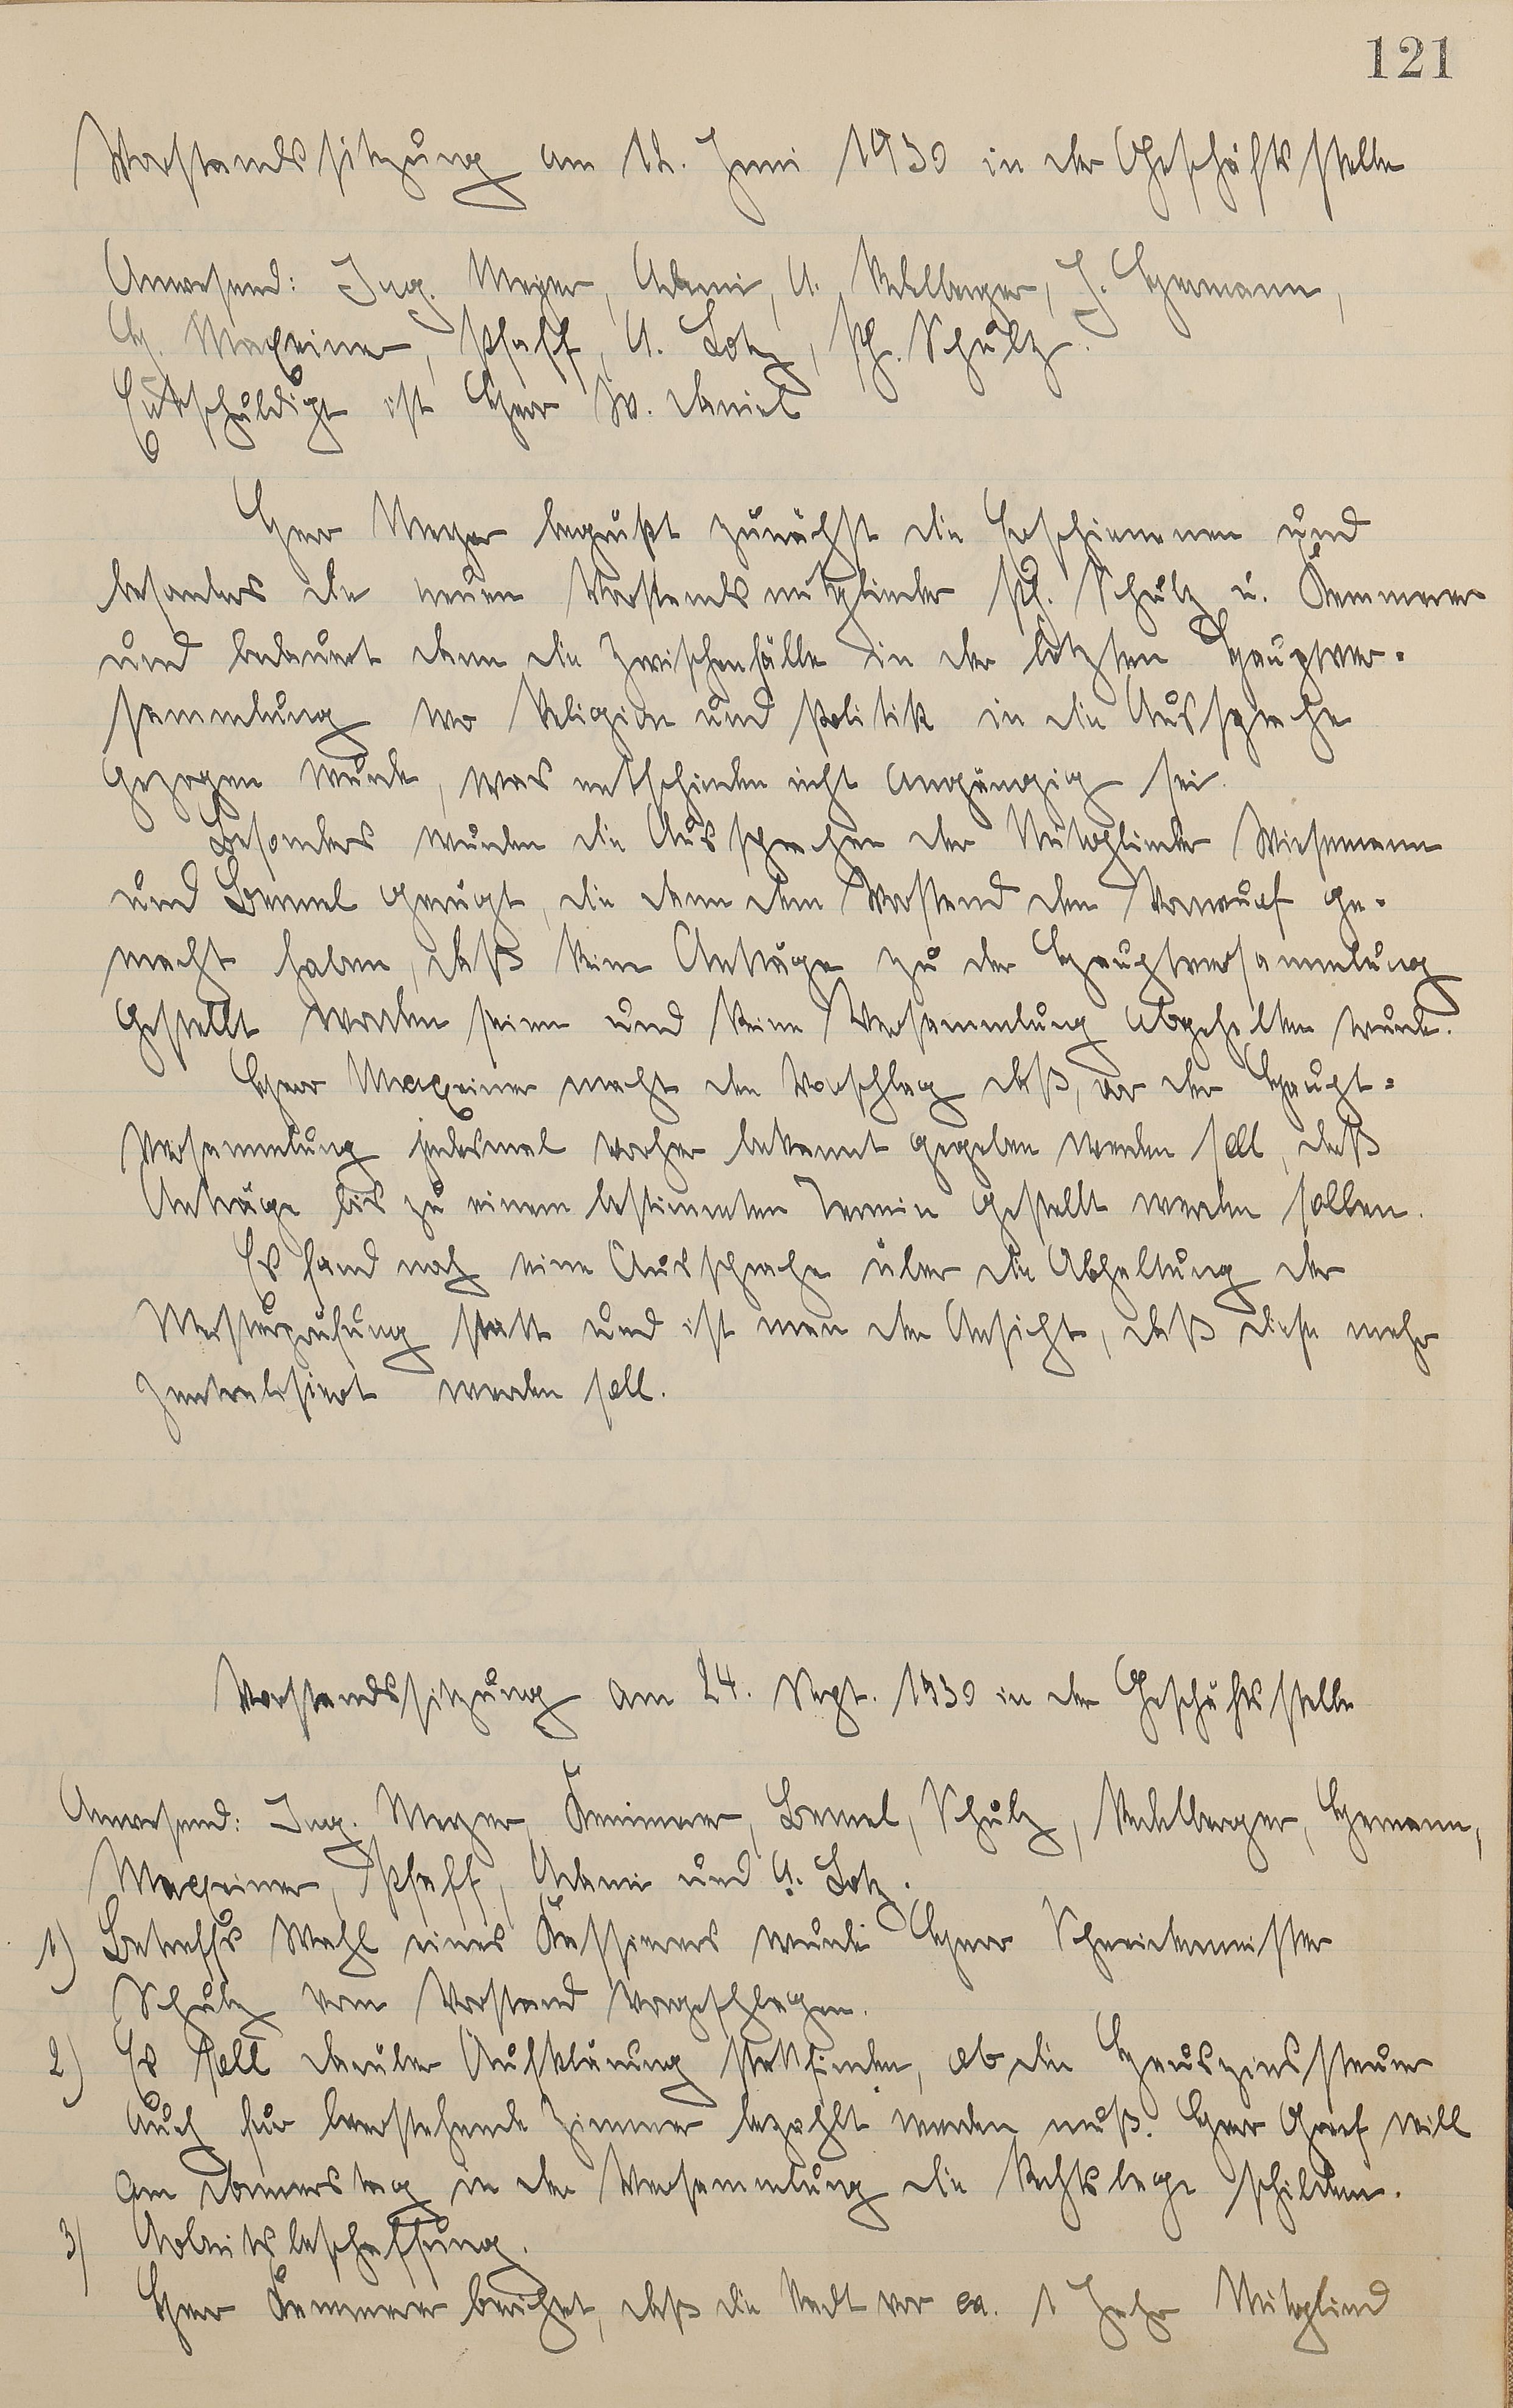 121
Vorstandssitzung am 12. Juni 1930 in der Geschäftsstelle
Anwesend: Ing. Meyer, Adami, A. Rehlberger, J. Hermann,
H. Maxeiner, Pfaff, A. Lotz, Ph. Schulz.
Entschuldigt ist Herr W. Daniel
Herr Meyer begrüßt zunächst die Erschienenen und
besonders die neuen Vorstandsmitglieder Ph. Schulz u. Kemmerer
und bedauert dann die Zwischenfälle in der letzten Hauptver-
sammlung wo Religion und Politik in die Aussprache
gezogen wurde, was entschieden nicht angängig sei.
Besonders wurden die Aussprachen der Mitglieder Wiesemann
und Bemel gerügt, die dann dem Vorstand den Vorwurf ge-
macht haben, daß keine Anträge zu der Hauptversammlung
gestellt worden seien und keine Versammlung abgehalten wurde.
Herr Maxeiner macht den Vorschlag daß, vor der Haupt-
versammlung jedesmal vorher bekannt gegeben werden soll, daß
Anträge bis zu einem bestimmten Termin gestellt werden sollen.
Es fand noch eine Aussprache über die Abhaltung der
Meisterprüfung statt und ist man der Ansicht, daß diese mehr
zentralisiert werden soll.
Vorstandssitzung am 24. Sept. 1930 in der Geschäftsstelle
Anwesend: Ing. Meyer, Kemmerer, Bemel, Schulz, Rehlberger, Hermann,
Maxeiner, Pfaff, Adami und A. Lotz.
1) Betreffs Wahl eines Kassierers wurde Herr Schneidermeister
Schulz vom Vorstand vorgeschlagen.
2) Es soll darüber Aufklärung stattfinden, ob die Hauszinssteuer
auch für leerstehende Zimmer bezahlt werden muß. Herr Graf will
am Donnerstag in der Versammlung die Rechtslage schildern.
3) Arbeitsbeschaffung.
Herr Kemmerer berichtet, daß die Stadt vor ca. 1 Jahr Mitglied